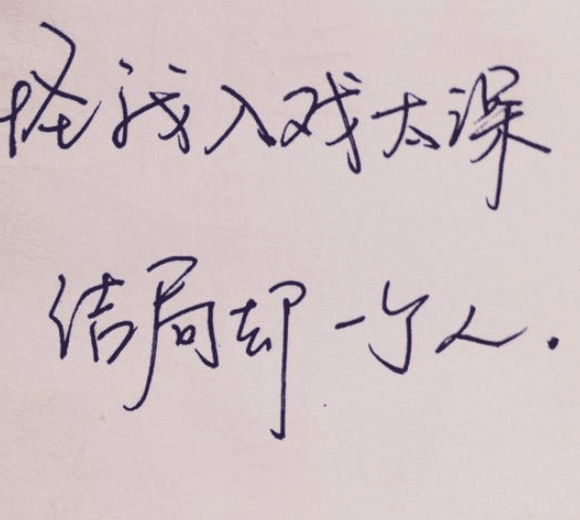 怪我入戏太深
结局却一个人.